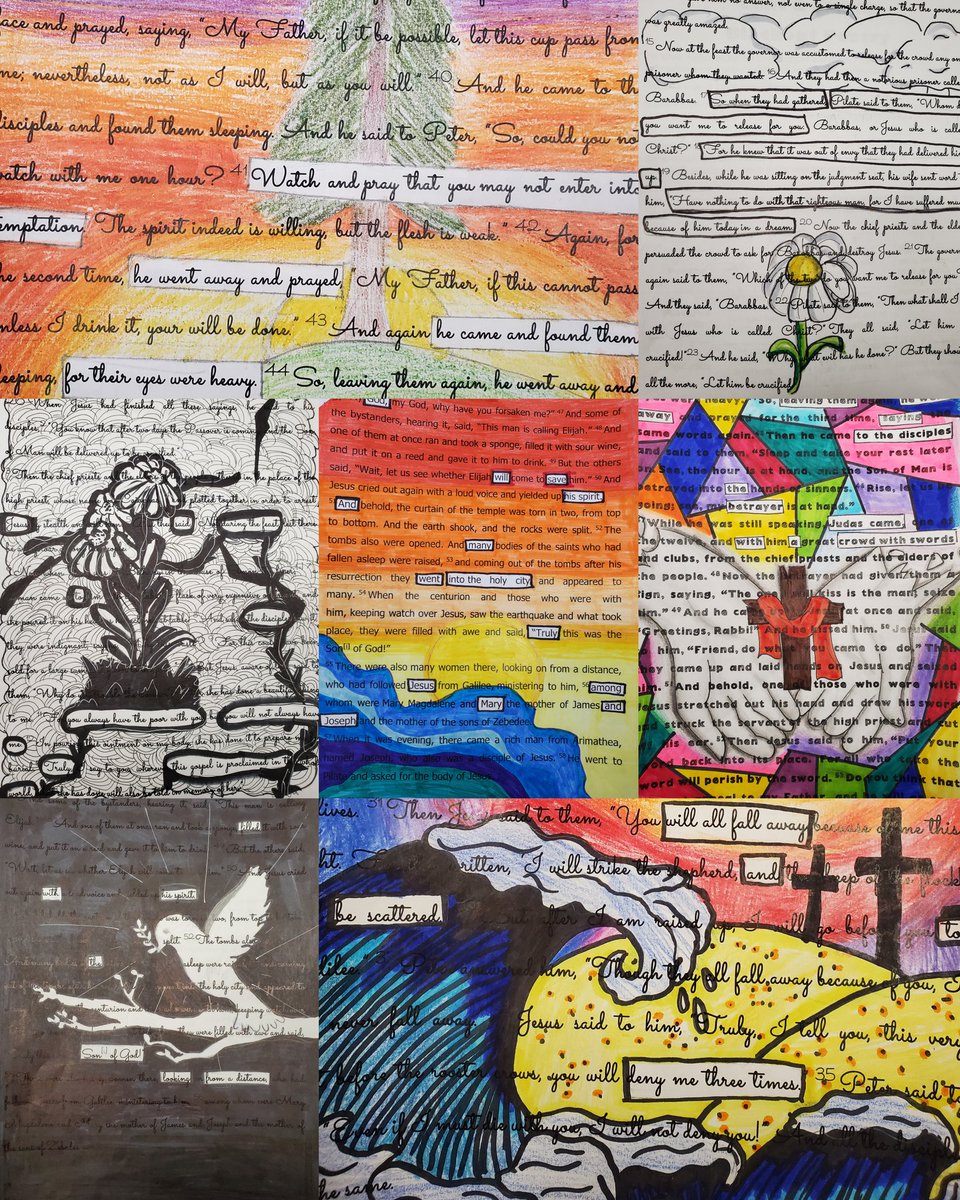 ace and prayed, saying, "My Father, if it be possible, let this cup pass from
me; nevertheless, not as I will, but as you will." 40 And he came to th
disciples and found them sleeping. And he said to Peter, "So, could you no
watch with me one hour? 41 Watch and pray that you may not enter into
emptation. The spirit indeed is willing, but the flesh is weak." 42 Again, for
he second time, he went away and prayed, "My Father, if this cannot pass
nless I drink it, your will be done." 43 And again he came and found them
leeping, for their eyes were heavy. 44 So, leaving them again, he went away and
him no answer, not even to a single charge, so that the governo
was greatly amazed.
15 Now at the feast the governor was accustomed to release for the crowd any on
prisoner whom they wanted. 16 And they had then a notorious prisoner calle
Barabbas. 17 So when they had gathered, Pilate said to them, "Whom d
you want me to release for you: Barabbas, or Jesus who is calle
Christ?" 18 For he knew that it was out of envy that they had delivered him
up. 19 Besides, while he was sitting on the judgment seat, his wife sent word t
him, "Have nothing to do with that righteous man, for I have suffered muc
because of him today in a dream." 20 Now the chief priests and the elde
persuaded the crowd to ask for Barabbas and destroy Jesus. 21 The govern
again said to them, "Which of the two do you want me to release for you?
And they said, "Barabbas." 22 Pilate said to them, "Then what shall I
with Jesus who is called Christ?" They all said, "Let him
crucified!" 23 And he said, "Why? What evil has he done?" But they shou
all the more, "Let him be crucified
When Jesus had finished all these sayings, he said to his
disciples, "You know that after two days the Passover is coming, and the Son
of Man will be delivered up to be crucified."
Then the chief priests and the elders in the palace of the
high priest whose name plotted together in order to arrest
Jesus stealth and said, Not during the feast, lest there
man came to flask of very expensive
she poured it on his table
they were indignant, say the disciples
sold for a large Jesus, aware of
them, "Why do she has done a beautiful
to me. For you always have the poor with you, you will not always have
me. In pouring this ointment on my body, she has done it to prepare
burial. Truly, I say to you, wherever this gospel is proclaimed in the whole
world, what she has done will also be told in memory of her."
God, my God, why have you forsaken me?" 47 And some of
the bystanders, hearing it, said, "This man is calling Elijah." 48 And
one of them at once ran and took a sponge, filled it with sour wine,
and put it on a reed and gave it to him to drink. 49 But the others
said, "Wait, let us see whether Elijah will come to save him." 50 And
Jesus cried out again with a loud voice and yielded up his spirit.
51 And behold, the curtain of the temple was torn in two, from top
to bottom. And the earth shook, and the rocks were split. 52 The
tombs also were opened. And many bodies of the saints who had
fallen asleep were raised, 53 and coming out of the tombs after his
resurrection they went into the holy city and appeared to
many. 54 When the centurion and those who were with
him, keeping watch over Jesus, saw the earthquake and what took
place, they were filled with awe and said, "Truly this was the
Son of God!"
55 There were also many women there, looking on from a distance,
who had followed Jesus from Galilee, ministering to him, 56 among
whom were Mary Magdalene and Mary the mother of James and
Joseph and the mother of the sons of Zebedee.
57 When it was evening, there came a rich man from Arimathea,
named Joseph, who also was a disciple of Jesus. 58 He went to
Pilate and asked for the body of Jesus.
So, leaving them again, he
away and prayed for the third time, saying
same words again. 45 Then he came to the disciples
and said to them, "Sleep and take your rest later
See, the hour is at hand, and the Son of Man is
betrayed into the hands of sinners. 46 Rise, let us
ing; see, my betrayer is at hand."
While he was still speaking, Judas came, one of
the twelve, and with him a great crowd with swords
and clubs, from the chief priests and the elders of
the people. 48 Now the betrayer had given them a
sign, saying, "The one I will kiss is the man; seize
him." 49 And he came up to Jesus at once and said,
"Greetings, Rabbi!" And he kissed him. 50 Jesus said
to him, "Friend, do what you came to do." The
they came up and laid hands on Jesus and seized
him. 51 And behold, one of those who were with
Jesus stretched out his hand and drew his sword
and struck the servant of the high priest and cut
off his ear. 52 Then Jesus said to him, "Put your
sword back into its place. For all who take the
sword will perish by the sword. 53 Do you think that
some of the bystanders, hearing it, said, "This man is calling
Elijah." And one of them at once ran and took a sponge, filled it with sour
wine, and put it on a reed and gave it to him to drink. But the others said,
"Wait, let us see whether Elijah will come
out again with a loud voice and yielded up his spirit.
was torn in two, from top
split. 52 The tombs also
And many bodies of the asleep were
into the holy city and appeared to
centurion and
they were filled with awe and said,
Son of God!"
women there, looking on from a distance,
lives. 31 Then Jesus said to them, "You will all fall away because of me this
ht. For it is written, 'I will strike the shepherd, and the sheep of the flock
be scattered. But after I am raised up, I will go before you to
lilee." Peter answered him, "Though they all fall away because of you, I
never fall away. Jesus said to him, Truly, I tell you, this very
before the rooster crows, you will deny me three times. 35 Peter said to
"Even if I must die with you, I will not deny you!" And all the discipl
he same.